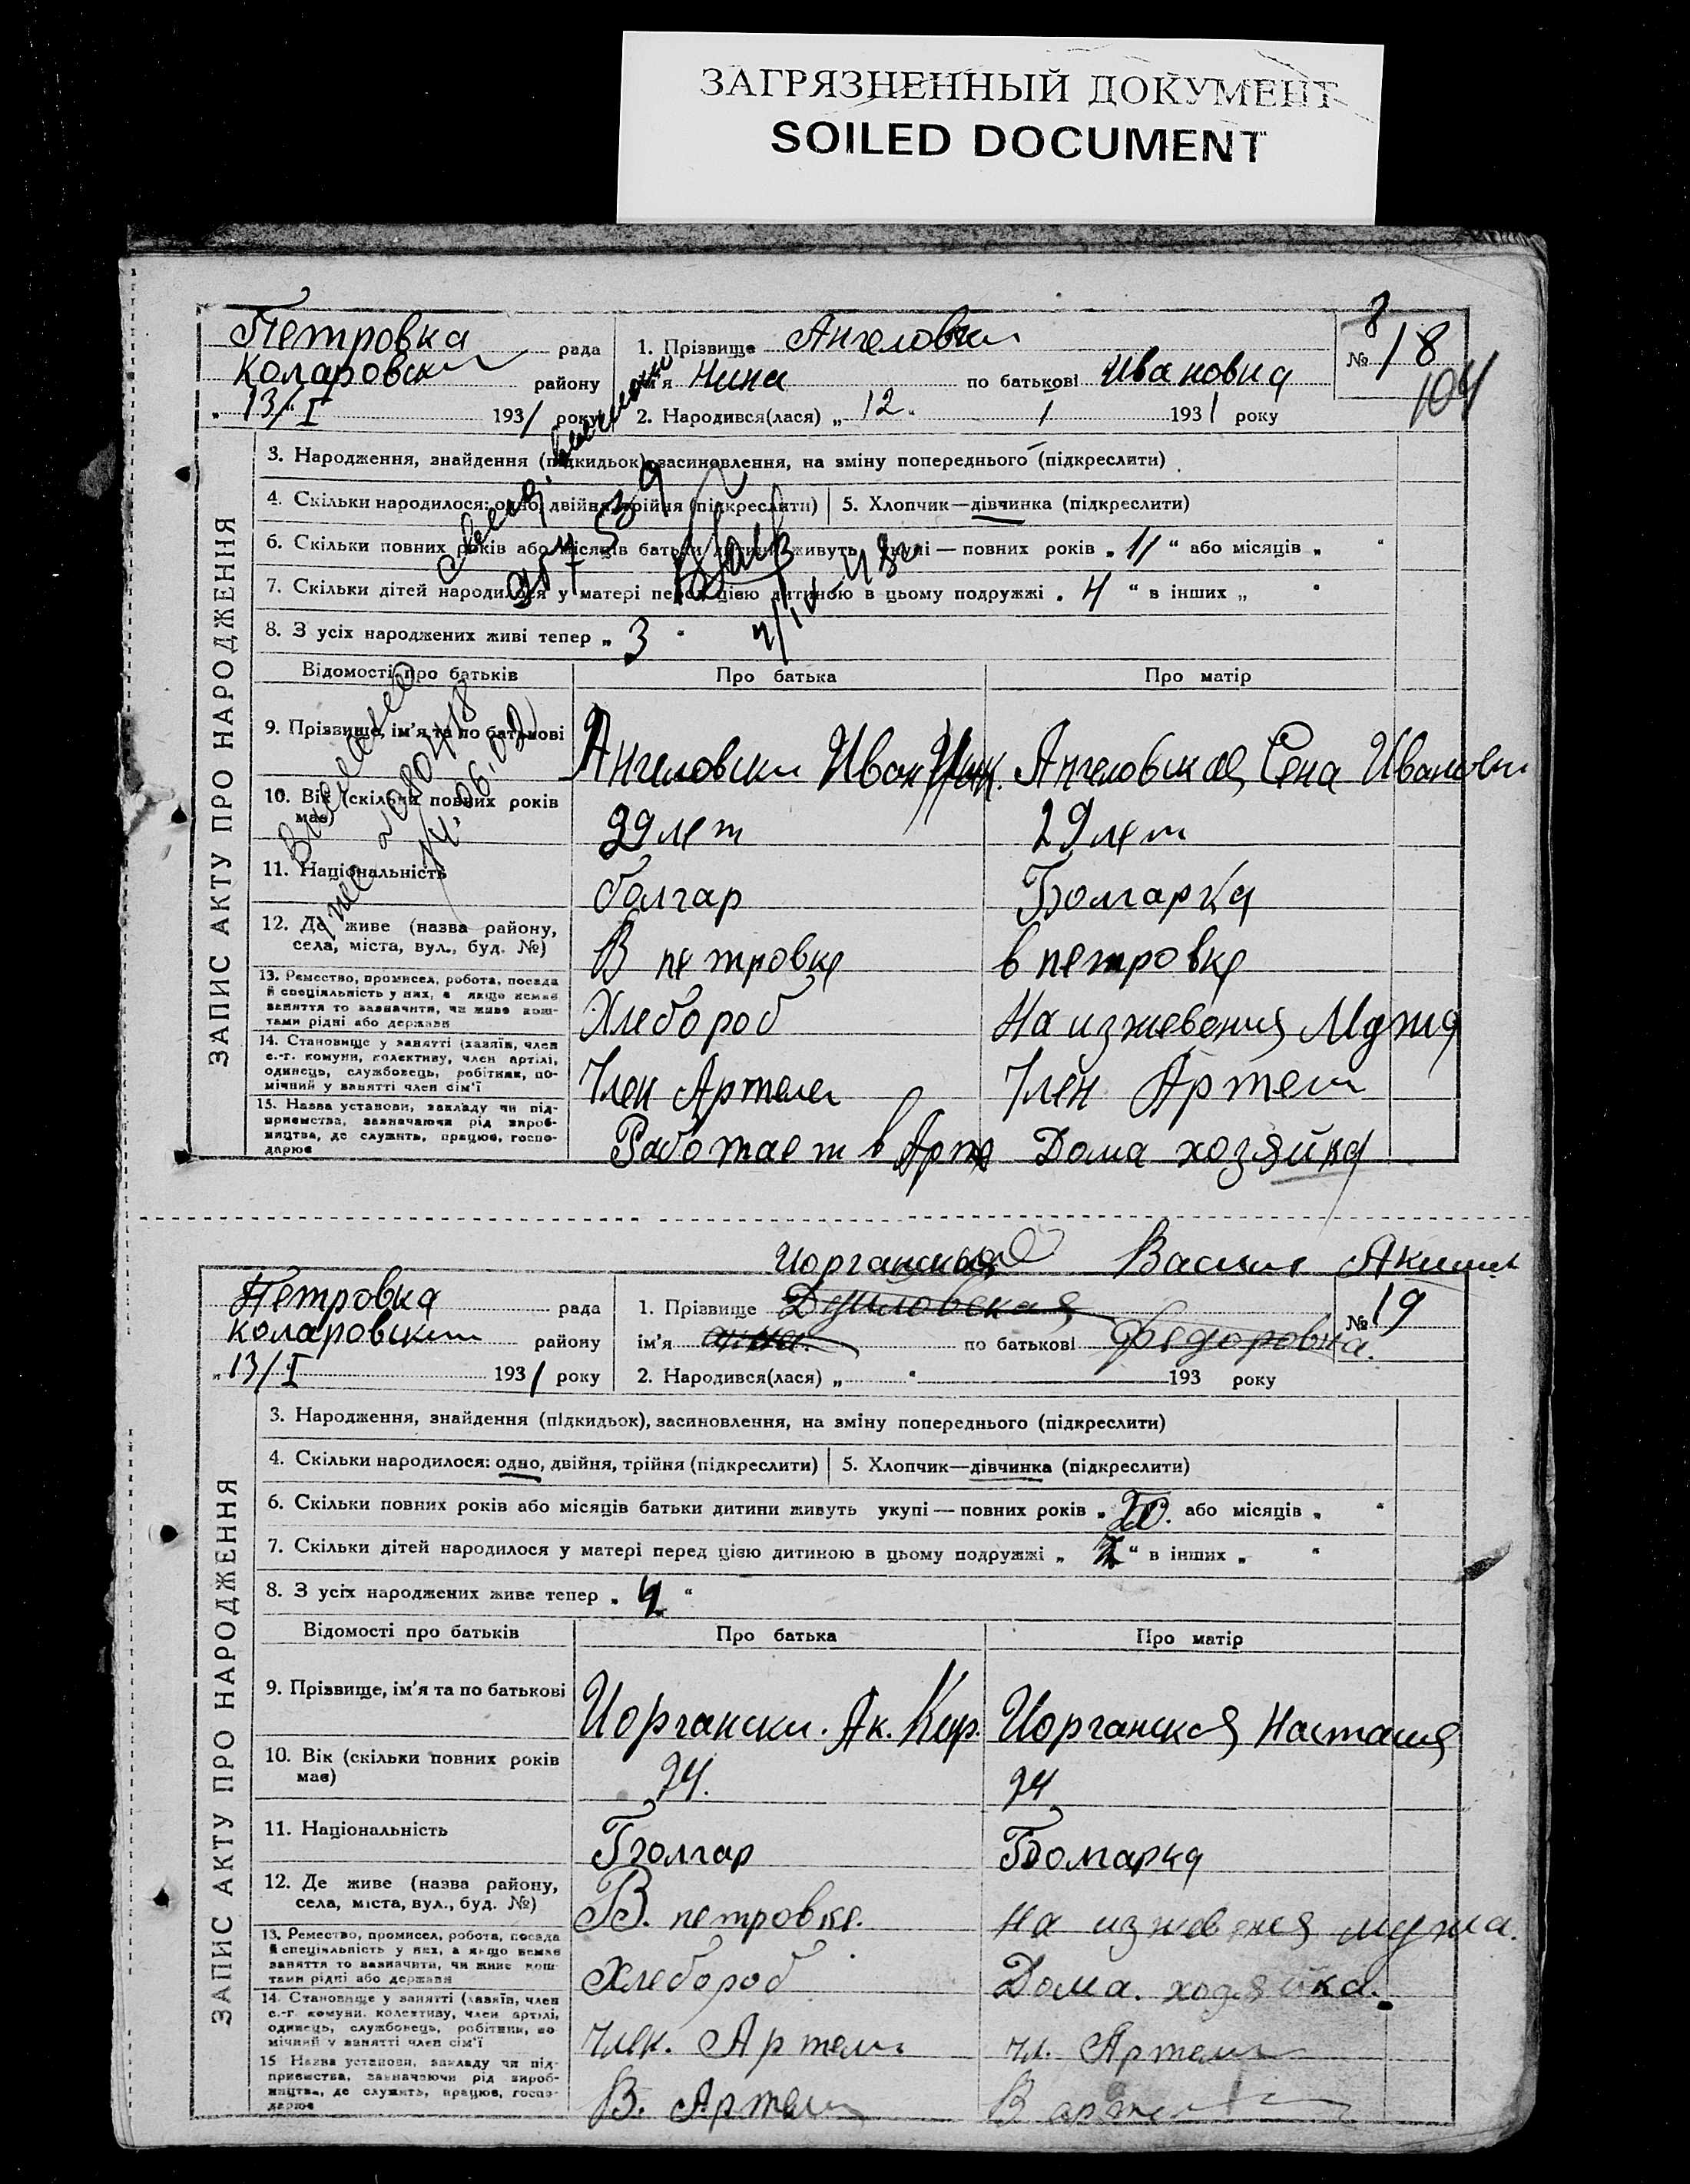 ЗАГРЯЗНЕННЫЙ ДОКУМЕНТ
SOILED DOCUMENT
Петровка рада
Коларовски району
„ 13/I 1931 року
1. Прізвище Ангеловски
ім'я Нина по батькові Ивановна
2. Народився(лася) „ 12. 1 1931 року
8
№ 18
104
ЗАПИС АКТУ ПРО НАРОДЖЕННЯ
3. Народження, знайдення (підкидьок), засиновлення, на зміну попереднього (підкреслити)
4. Скільки народилося: одно, двійня, трійня (підкреслити) 5. Хлопчик—дівчинка (підкреслити)
6. Скільки повних років або місяців батьки дитини живуть укупі — повних років „ 11 “ або місяців „ “
7. Скільки дітей народилося у матері перед цією дитиною в цьому подружжі „ 4 “ в інших „ “
8. З усіх народжених живі тепер „ 3 “
Відомості про батьків Про батька Про матір
9. Прізвище, ім'я та по батькові Ангеловски Иван Ангеловская Сена Ивановн
10. Вік (скільки повних років має) 39 лет 29 лет
11. Національність болгар Болгарка
12. Де живе (назва району, села, міста, вул., буд. №) В петровке в петровке
13. Ремество, промисел, робота, посада й спеціяльність у них, а якщо немає заняття то зазначити, чи живе коштами рідні або держави Хлебороб На изжевения Мужа
14. Становище у занятті (хазяїн, член с.-г. комуни, колективу, член артілі, одинець, службовець, робітник, помічний у занятті член сім'ї Член Артели Член Артели
15. Назва установи, закладу чи підприємства, зазначаючи рід виробництва, де служить, працює, господарює Работает в Арте Дома хозяйка
14.06.02
Иорганская Васили Акимов
Петровка рада
Коларовски району
„ 13/I 1931 року
1. Прізвище
ім'я анна по батькові Федоровна.
2. Народився(лася) „ “ 193 року
№ 19
ЗАПИС АКТУ ПРО НАРОДЖЕННЯ
3. Народження, знайдення (підкидьок), засиновлення, на зміну попереднього (підкреслити)
4. Скільки народилося: одно, двійня, трійня (підкреслити) 5. Хлопчик—дівчинка (підкреслити)
6. Скільки повних років або місяців батьки дитини живуть укупі — повних років „ або місяців „ “
7. Скільки дітей народилося у матері перед цією дитиною в цьому подружжі „ “ в інших „ “
8. З усіх народжених живе тепер „ 4 “
Відомості про батьків Про батька Про матір
9. Прізвище, ім'я та по батькові Иоргански. Ак. Кир. Иорганская Настасия
10. Вік (скільки повних років має)
11. Національність Болгар Болгарка
12. Де живе (назва району, села, міста, вул., буд. №) В. петровке. На изжевеня мужа.
13. Ремество, промисел, робота, посада й спеціяльність у них, а якщо немає заняття то зазначити, чи живе коштами рідні або держави Хлебороб Дома. хозяйка.
14. Становище у занятті (хазяїн, член с.-г. комуни, колективу, член артілі, одинець, службовець, робітник, помічний у занятті член сім'ї Член. Артели чл. Артели
15 Назва установи, закладу чи підприємства, зазначаючи рід виробництва, де служить, працює, господарює В. Артели В артели